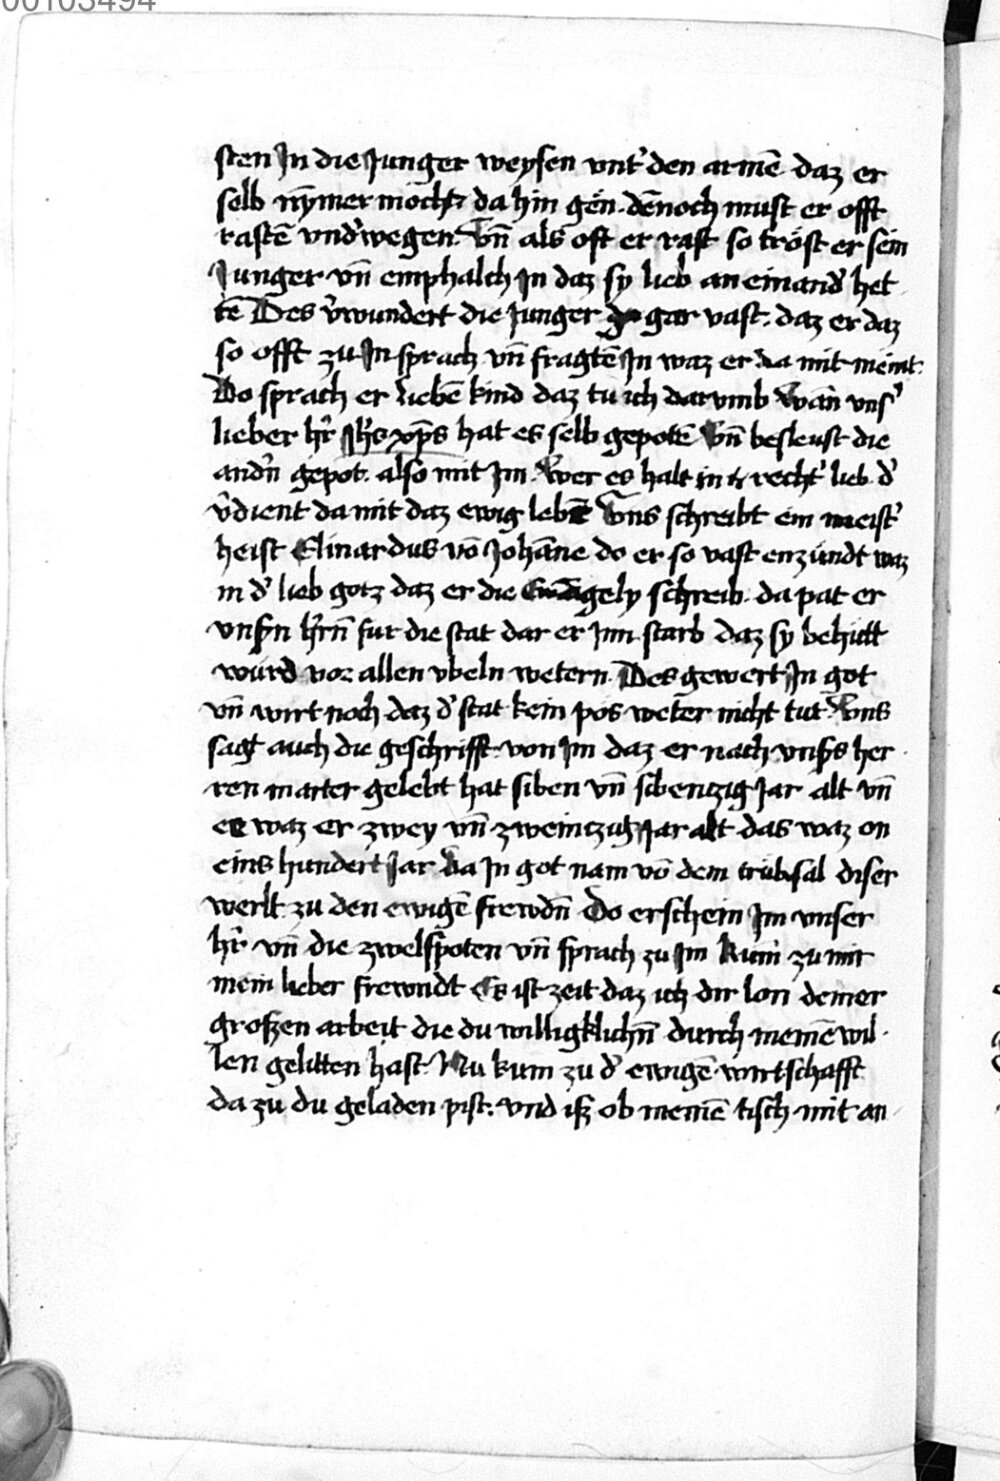 00103494
sten Jn die Junger weysen vnt' den armē daz er
selb nȳmer möcht da hin gen. dēnoch must er offt
rastē vnd' wegen. Vn̄ als oft er rast so tröst er sein
Junger vn̄ emphalch Jn daz sy lieb an einand' het
tē Des v'wundert die Junger gar vast. daz er daz
so offt zu Jn sprach vn̄ fragtē Jn waz er da mit meint.
Do sprach er lieben̄ kind daz tu ich darvmb Wan vns'
lieber h'r Jh's xp̄s hat es selb gepotē Vn̄ besleust die
and'n gepot. also mit Jm. Wer es halt in recht' lieb. d'
v'dient da mit daz ewig leben Vns schreibt ein meist'
heist Elinardus vō Johāne do er so vast enzündt waz
in d' lieb gotz daz er die Ewāgely schreib. da pat er
vnsn̄ h'rn̄ fur die stat dar er Jnn starb daz sy behutt
wurd vor allen vbeln wetern. Des gewert Jn got
vn̄ wirt noch daz d' stat kein pös weter nicht tut. Vns
sagt auch die geschrifft von Jm daz er nach vns's her
ren marter gelebt hat siben vn̄ sibentzig Jar alt vn̄
ee waz er zwey vn̄ zweintzig Jar alt das waz on
eins hundert Jar Da Jn got nam vō dem trübsal diser
werlt zu den ewigē frewdn̄ Do erschein Jm vnser
h'r vn̄ die zwelfpoten vn̄ sprach zu Jm Kum zu mir
mein lieber frewndt Es ist zeit daz ich dir lon deiner
großen arbeit die du willigklichn̄ durch meinē wil
len gelitten hast. Nu kum zu d' ewigē wirtschafft
da zu du geladen pist. vnd iß ob meinē tisch mit an